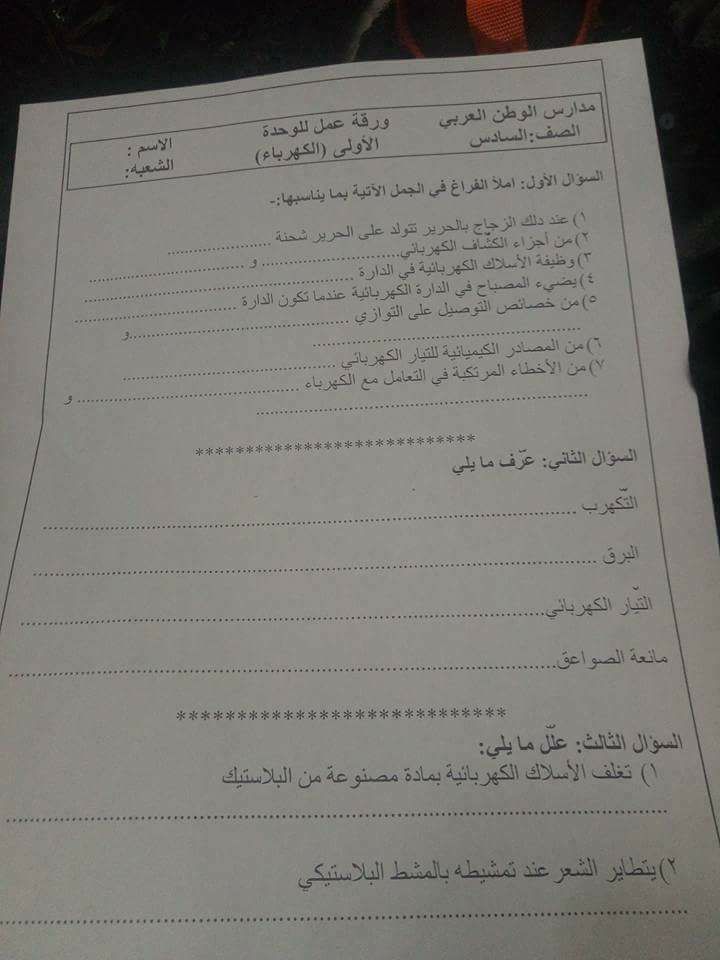 مدارس الوطن العربي
الصف:السادس
ورقة عمل للوحدة
الأولى (الكهرباء)
الاسم :
الشعبه:
السؤال الأول: املأ الفراغ في الجمل الآتية بما يناسبها:-
١) عند دلك الزجاج بالحرير تتولد على الحرير شحنة ....................
٢)من أجزاء الكشّاف الكهربائي.................... و ....................
٣)وظيفة الأسلاك الكهربائية في الدارة ....................
٤)يضيء المصباح في الدارة الكهربائية عندما تكون الدارة ....................
٥)من خصائص التوصيل على التوازي ....................و
....................
٦)من المصادر الكيميائية للتيار الكهربائي ....................
٧)من الأخطاء المرتكبة في التعامل مع الكهرباء .................... و
....................
****************************
السؤال الثاني: عرّف ما يلي
التّكهرب ....................
البرق ....................
التيّار الكهربائي....................
مانعة الصواعق....................
****************************
السؤال الثالث: علّل ما يلي:
١) تغلف الأسلاك الكهربائية بمادة مصنوعة من البلاستيك
....................
٢)يتطاير الشعر عند تمشيطه بالمشط البلاستيكي
....................